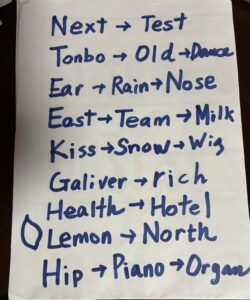 Next → Test
Tonbo → Old → Dance
Ear → Rain → Nose
East → Team → Milk
Kiss → Snow → Wig
Galiver → rich
Health → Hotel
Lemon → North
Hip → Piano → Organ